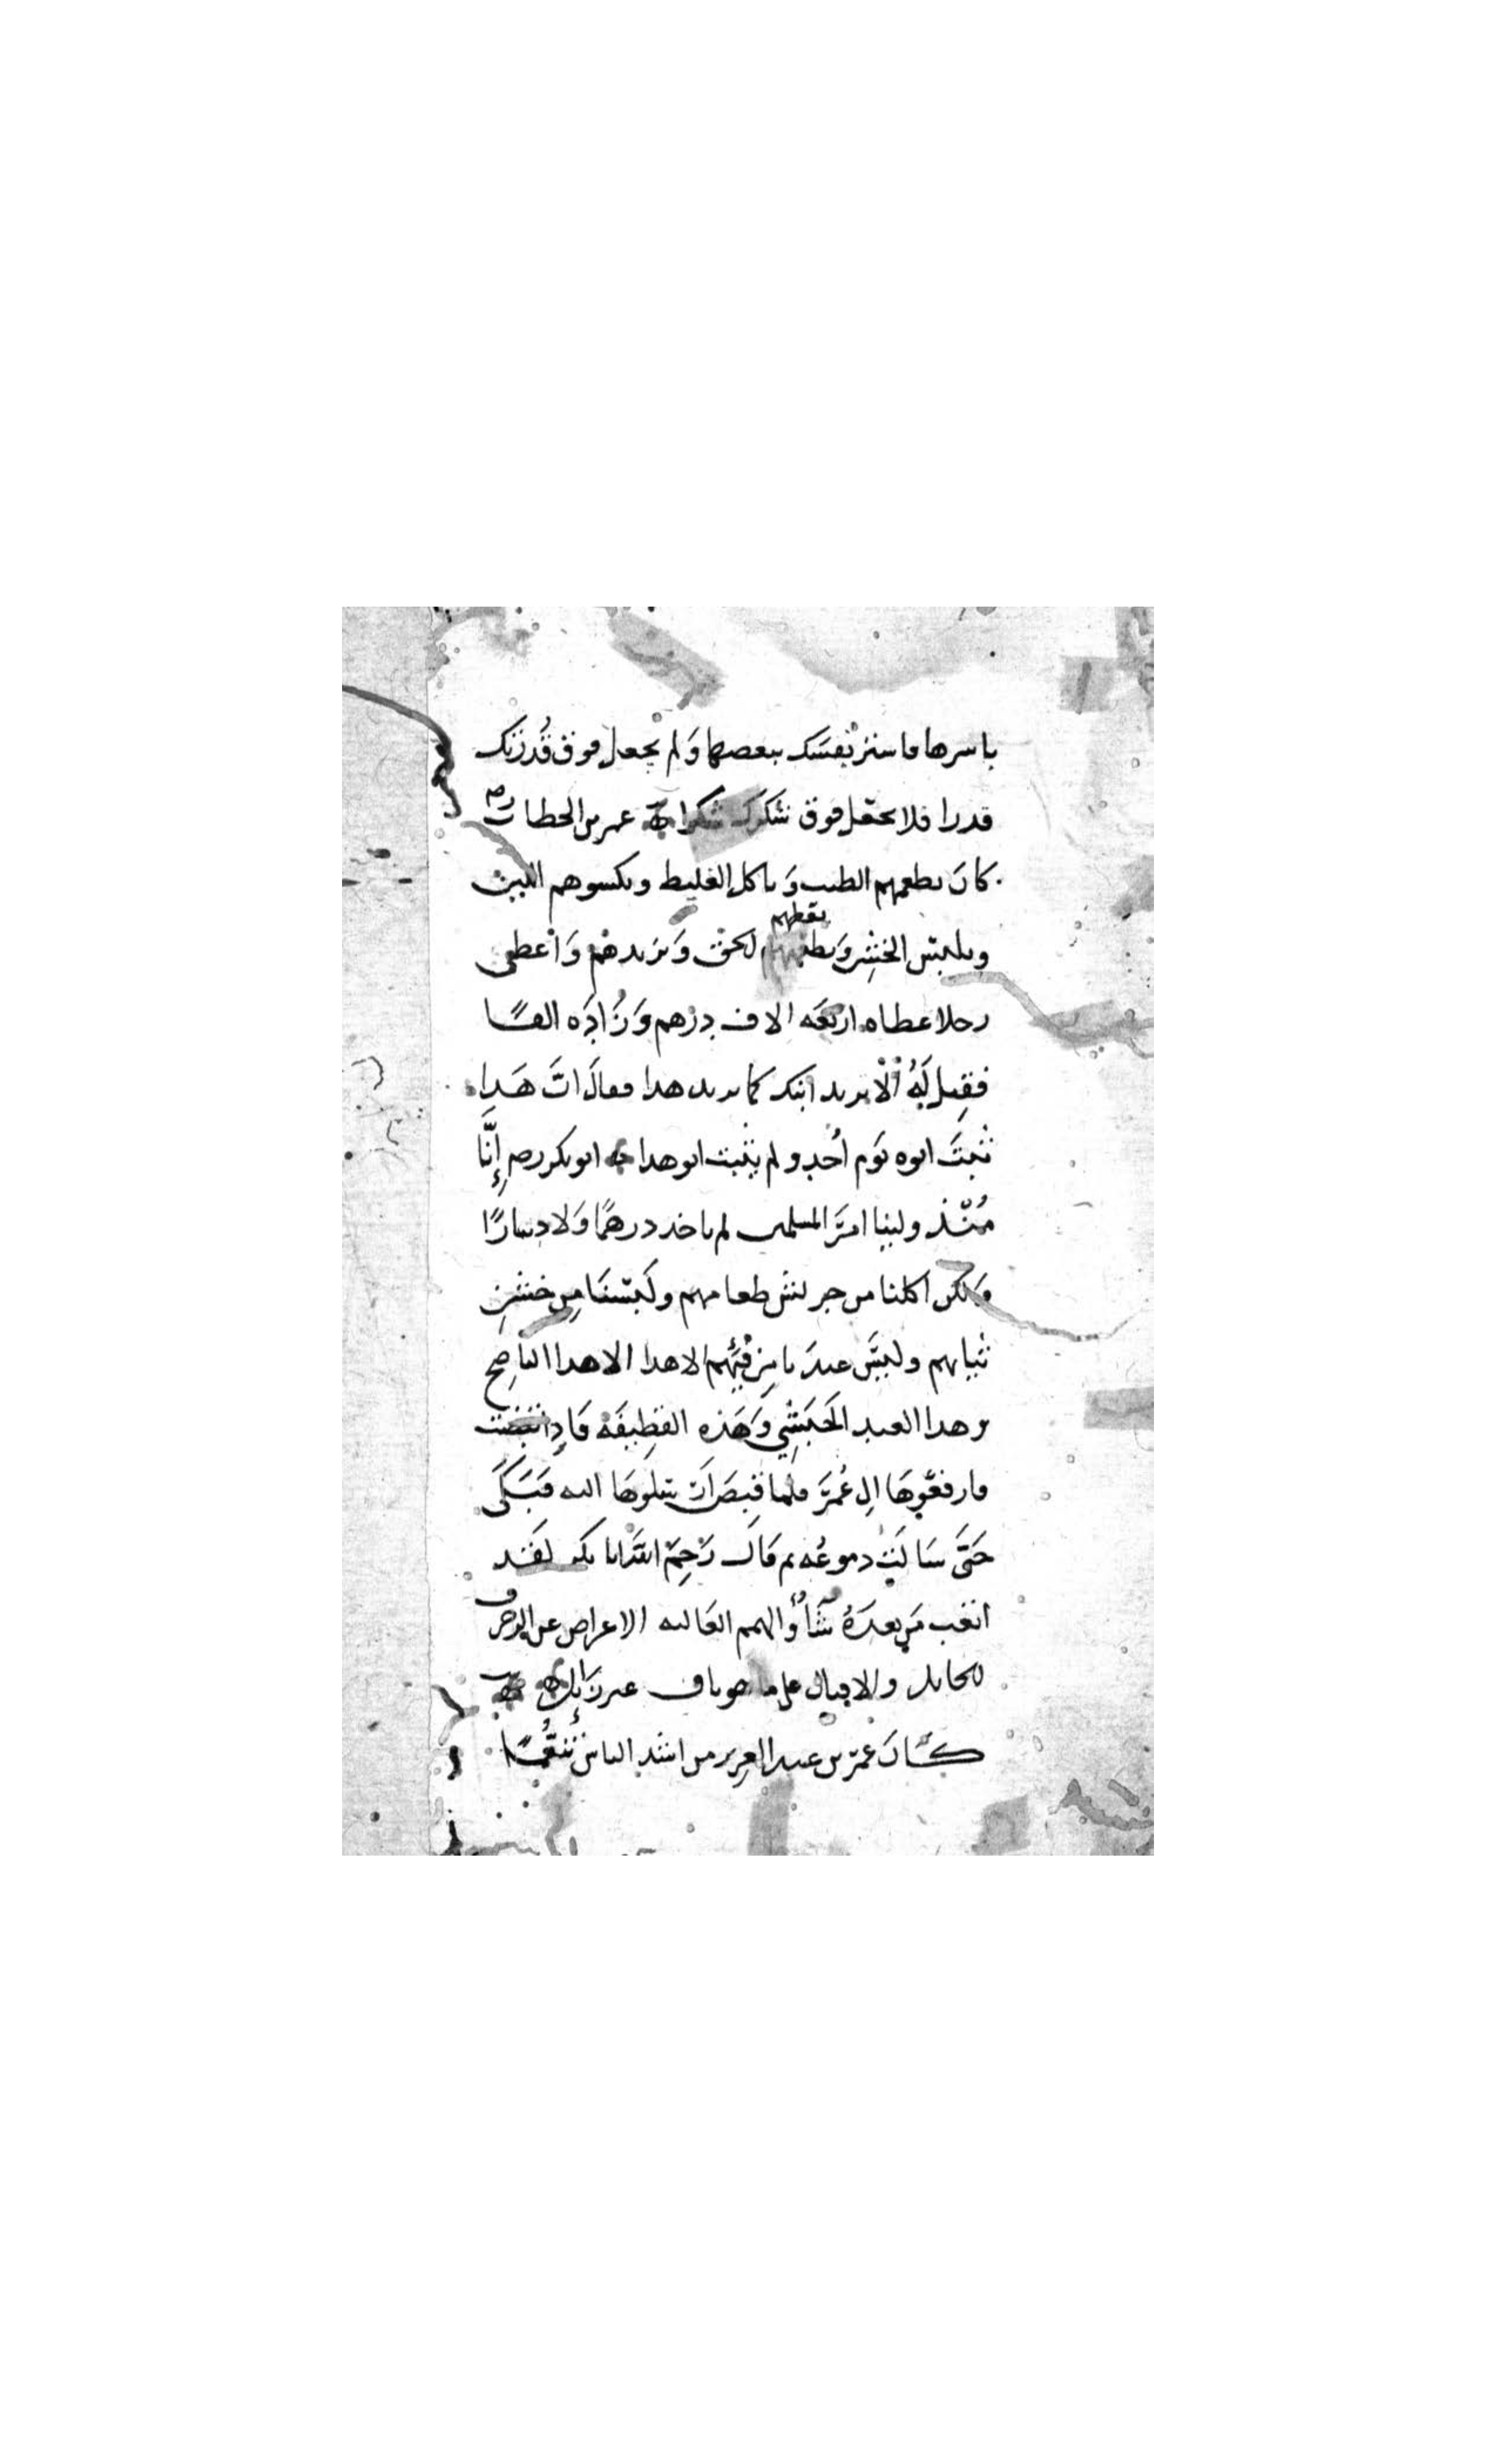 باسرها فاشتر نفسك ببعضها ولم يجعل فوق قدرتك
قدرا فلا تجعل فوق شكرك شكرا عمر بن الخطاب رضه
كان يطعمهم الطيب وياكل الغليظ ويكسوهم اللين
ويلبس الخشن ويعطيهم الحق ويزيدهم وَاعطى
رجلا عطاه اربعه الاف درهم وَزَادَه الفًا
فقِيل لَهُ ألا تزيد ابنك كما تزيد هذا فقالَ انَّ هَذا
ثبتَ ابوه يَوم أُحُدٍ ولم يثبت ابو هذا ابو بكر رضه إِنَّا
مُنذ ولينا امرَ المسلمين لم ناخذ درهمًا وَلا دينارًا
وَلكن اكلنا من جريش طعامهم ولَبِسْنَا مِن خشنِ
ثيابهم وليسَ عندنا مِن فَيْئِهِم الا هذا الناضِح
وهذا العبد الحَبَشِي وَهَذه القطِيفَه فَاذِا قُبِضْت
فارفعُوهَا الى عُمَرَ فلما قُبِضَ اَرْسَلوهَا اليه فَبَكَى
حَتَّى سَالَت دموعُه ثم قَال رَحِمَ اللهُ ابا بكر لقَد
اتعب مَن بعدَهُ شَأْوُ الهمم العَاليه الاعراض عن الزخرف
الحايل والاقبال على ما هو باق غير زَايِل
كَانَ عمَر بن عبد العزيز من اشد الناس تنَعُّمًا